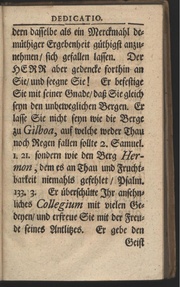 DEDICATIO.
dern dasselbe als ein Merckmahl de-
müthiger Ergebenheit gütigst anzu-
nehmen/ sich gefallen lassen. Der
HERR aber gedencke forthin an
Sie/ und segne Sie! Er befestige
Sie mit seiner Gnade/ daß Sie gleich
seyn den unbeweglichen Bergen. Er
lasse Sie nicht seyn wie die Berge
zu Gilboa, auf welche weder Thau
noch Regen fallen sollte 2. Samuel.
1. 21. sondern wie den Berg Her-
mon, dem es an Thau und Frucht-
barkeit niemahls gefehlet/ Psalm.
133. 3. Er überschütte Ihr ansehn-
liches Collegium mit vielen Ge-
deyen/ und erfreue Sie mit der Freu-
de seines Antlitzes. Er gebe den
Geist